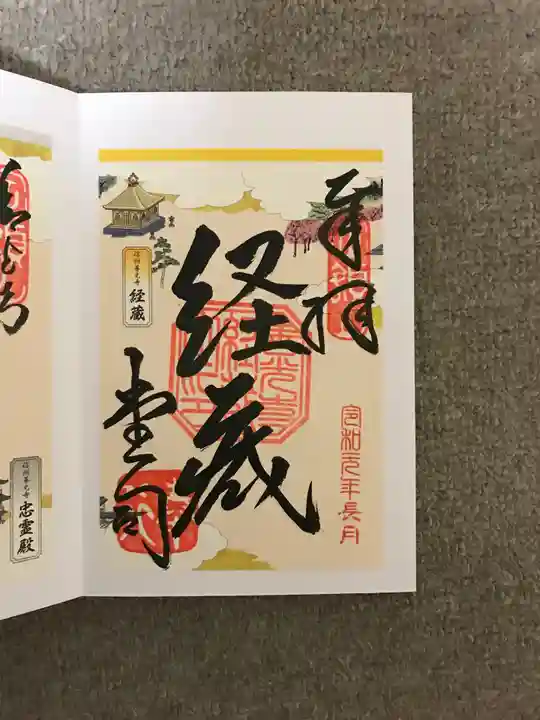 奉拝
経蔵
堂司
信州善光寺 経蔵
令和元年長月
信州善光寺 忠霊殿